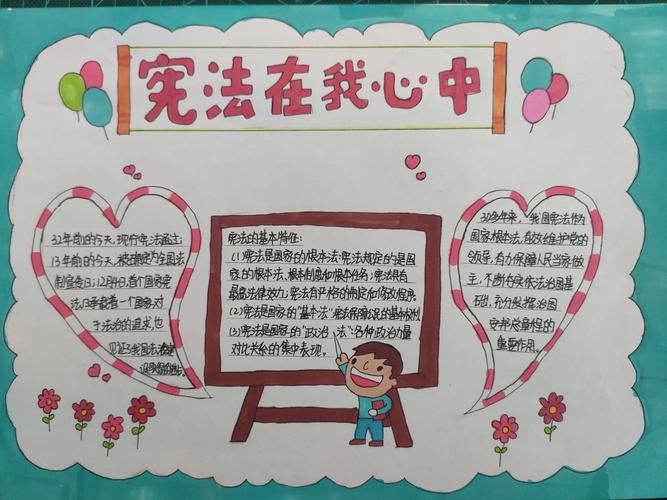 宪法在我心中
32年前的今天,现行宪法通过;
13年前的今天,被确定为全国法
制宣传日;12月4日,首个国家宪
法日承载着一个国家对
于法治的追求,也
见证了我国法治建
设
宪法的基本特征:
(1)宪法是国家的根本法:宪法规定的是国
家的根本法、根本制度和根本任务;宪法具有
最高法律效力;宪法有严格的制定和修改程序。
(2)宪法是国家的"基本法":宪法
(3)宪法是国家的"政治法":各种政治力量
对比关系的集中表现。
30多年来,我国宪法作为
国家根本法,有效维护党的
领导,有力保障人民当家做
主,不断夯实依法治国基
础,充分发挥治国
安邦总章程的
重要作用。